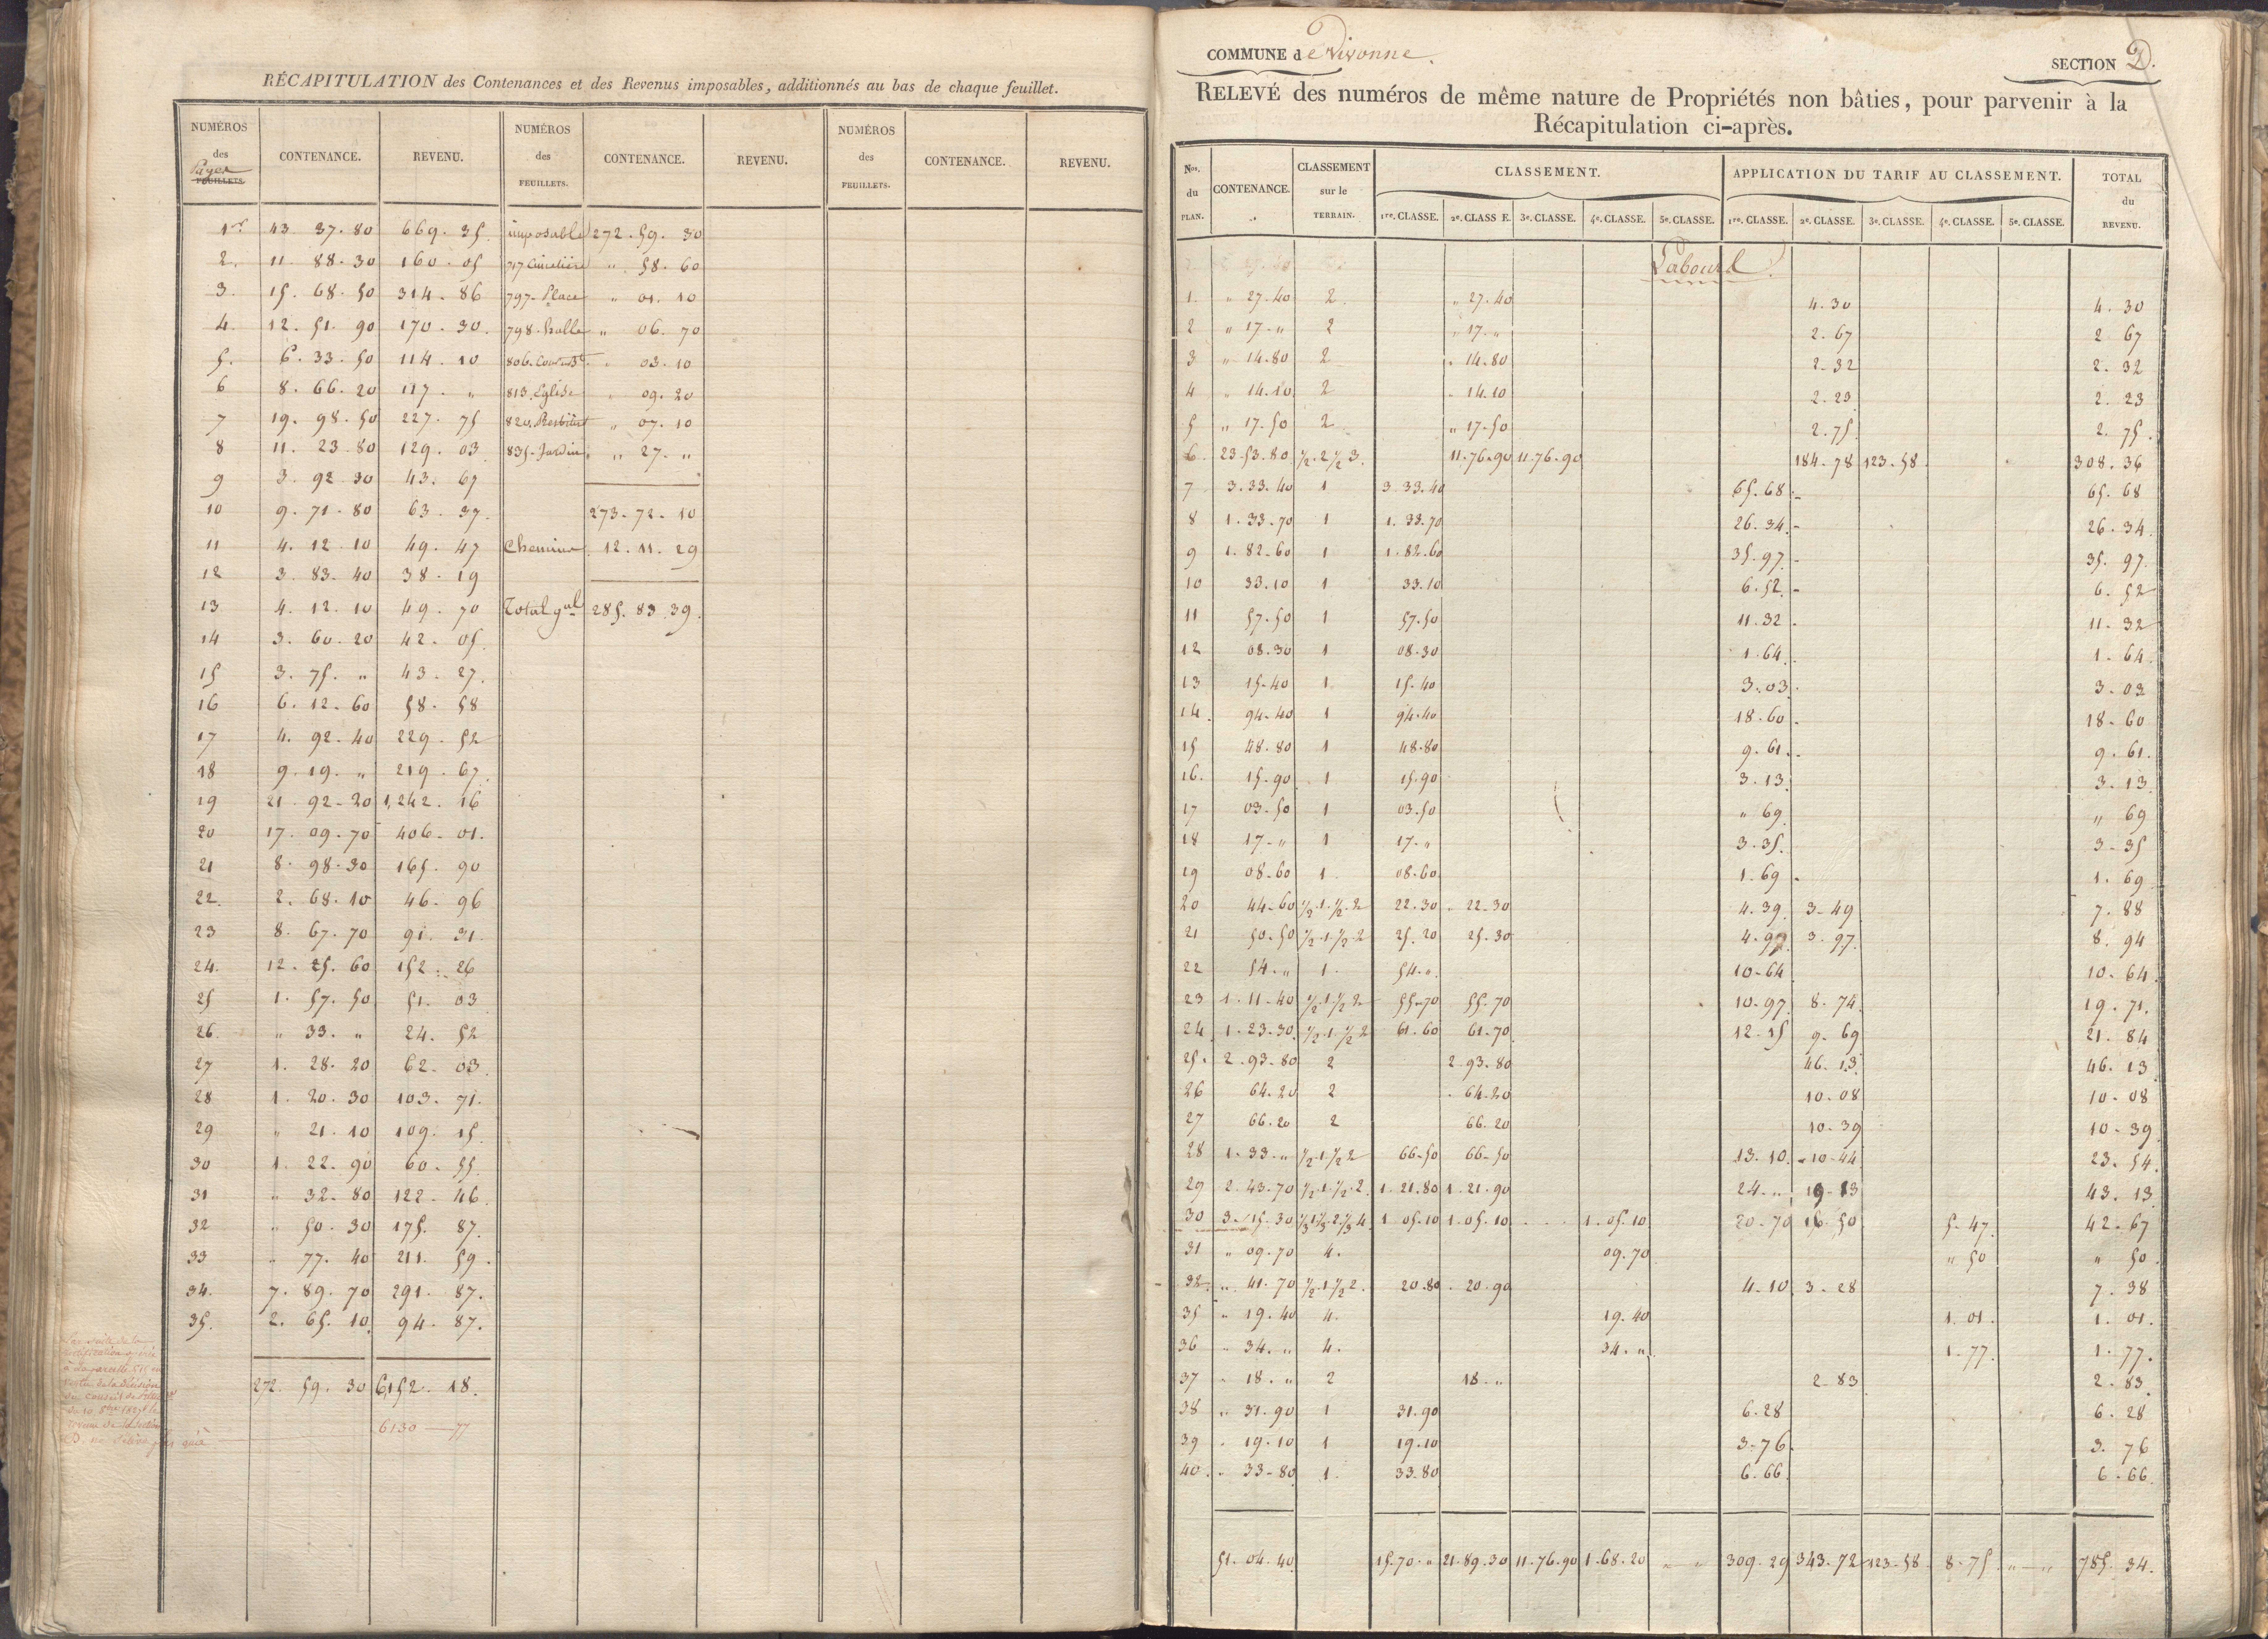 RÉCAPITULATION des Contenances et des Revenus imposables, additionnés au bas de chaque feuillet.
NUMÉROS des Pages FEUILLETS. CONTENANCE. REVENU. NUMÉROS des FEUILLETS. CONTENANCE. REVENU. NUMÉROS des FEUILLETS. CONTENANCE. REVENU.
1er 43. 37. 80 669. 35. imposable 272. 59. 30
2. 11. 88. 30 160. 05 717 Cimetière " 58. 60
3. 15. 68. 50 314. 86 797. Place " 01. 10
4. 12. 51. 90 170. 30. 798. halle " 06. 70
5. 6. 33. 50 114. 10 806. " 03. 10
6 8. 66. 20 117. " 813. Eglise " 09. 20
7 19. 98. 50 227. 75 820. " 07. 10
8 11. 23. 80 129. 03 835. Jardin " 27. "
9 3. 92. 30 43. 67
10 9. 71. 80 63. 37. 273. 72. 10
11 4. 12. 10 49. 47 Chemins 12. 11. 29
12 3. 83. 40 38. 19
13 4. 12. 10 49. 70 Total gal 285. 83. 39.
14 3. 60. 20 42. 05.
15 3. 75. " 43. 27.
16 6. 12. 60 58. 58
17 4. 92. 40 229. 52
18 9. 19. " 219. 67.
19 21. 92. 20 1,242. 16
20 17. 09. 70 406. 01.
21 8. 98. 30 165. 90
22. 2. 68. 10 46. 96
23 8. 67. 70 91. 31.
24. 12. 25. 60 152. 26
25 1. 57. 50 51. 03
26. " 33. " 24. 52
27 1. 28. 20 62. 03
28 1. 20. 30 103. 71.
29 " 21. 10 109. 15.
30 1. 22. 90 60. 55.
31 " 32. 80 122. 46
32 " 50. 30 175. 87.
33 " 77. 40 211. 59.
34. 7. 89. 70 291. 87.
35. 2. 65. 10 94. 87.
272. 59. 30 6152. 18.
6130 — 77
COMMUNE de Vivonne.
SECTION D.
RELEVÉ des numéros de même nature de Propriétés non bâties, pour parvenir à la
Récapitulation ci-après.
Nos. du PLAN. CONTENANCE. CLASSEMENT sur le TERRAIN. CLASSEMENT. APPLICATION DU TARIF AU CLASSEMENT. TOTAL du REVENU.
1re. CLASSE. 2e. CLASS E. 3e. CLASSE. 4e. CLASSE. 5e. CLASSE. 1re. CLASSE. 2e. CLASSE. 3e. CLASSE. 4e. CLASSE. 5e. CLASSE.
Labourd
1. " 27. 40 2. " 27. 40 4. 30 4. 30
2 " 17. " 2 " 17. " 2. 67 2. 67
3 " 14. 80 2 " 14. 80 2. 32 2. 32
4 " 14. 10 2 " 14. 10 2. 23 2. 23
5 " 17. 50 2 " 17. 50 2. 75. 2. 75.
6. 23. 53. 80 1/2. 2 1/2 3. 11. 76. 90 11. 76. 90 184. 78 123. 58 308. 36
7 3. 33. 40 1 3. 33. 40 65. 68 65. 68
8 1. 33. 70 1 1. 33. 70 26. 34. 26. 34.
9 1. 82. 60 1 1. 82. 60 35. 97. 35. 97.
10 33. 10 1 33. 10 6. 52. 6. 52
11 57. 50 1 57. 50 11. 32. 11. 32
12 08. 30 1 08. 30 1. 64. 1. 64
13 15. 40 1 15. 40 3. 03. 3. 03
14. 94. 40 1 94. 40 18. 60. 18. 60
15 48. 80 1 48. 80 9. 61. 9. 61.
16. 15. 90 1 15. 90 3. 13. 3. 13.
17 03. 50 1 03. 50 " 69 " 69
18 17. " 1 17. " 3. 35. 3. 35
19 08. 60 1. 08. 60 1. 69. 1. 69
20 44. 60 1/2. 1. 1/2. 2 22. 30 22. 30 4. 39. 3. 49 7. 88
21 50. 50 1/2. 1. 1/2. 2 25. 20 25. 30 4. 97 3. 97. 8. 94
22 54. " 1. 54. " 10. 64 10. 64
23 1. 11. 40 1/2. 1. 1/2 2 55. 70 55. 70 10. 97 8. 74. 19. 71.
24 1. 23. 30 1/2. 1. 1/2 2 61. 60 61. 70 12. 15 9. 69 21. 84
25. 2. 93. 80 2 2. 93. 80 46. 13. 46. 13
26 64. 20 2 64. 20 10. 08 10. 08
27 66. 20 2 66. 20 10. 39 10. 39
28 1. 33. " 1/2. 1. 1/2 2 66. 50 66. 50 13. 10. 10. 44 23. 54.
29 2. 43. 70 1/2. 1. 1/2. 2. 1. 21. 80 1. 21. 90 24. " 19. 13 43. 13
30 3. 15. 30 1/3 1 1/3. 2. 1/3 4. 1. 05. 10 1. 05. 10 1. 05. 10 20. 70 16. 50 5. 47. 42. 67
31 " 09. 70 4. 09. 70 " 50 " 50.
32. " 41. 70 1/2. 1 1/2 2. 20. 80 20. 90 4. 10 3. 28 7. 38
35 " 19. 40 4. 19. 40 1. 01. 1. 01.
36 " 34. " 4. 34. " 1. 77. 1. 77.
37 " 18. " 2 18. " 2. 83 2. 83
38 " 31. 90 1 31. 90 6. 28 6. 28
39 " 19. 10 1 19. 10 3. 76. 3. 76
40. " 33. 80 1. 33. 80 6. 66 6. 66.
51. 04. 40 15. 70. " 21. 89. 30 11. 76. 90 1. 68. 20 " " 309. 29 343. 72 123. 58. 8. 75. " — " 785. 34.